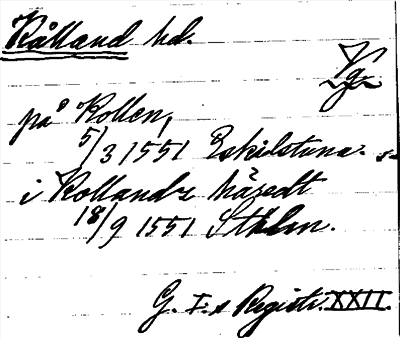 Kålland hd.
Vg
på Kollen,
5/3 1551 Eskilstuna. s.
i Kollandz häredt
18/9 1551 Sthlm.
G. I.s Registr. XXII.